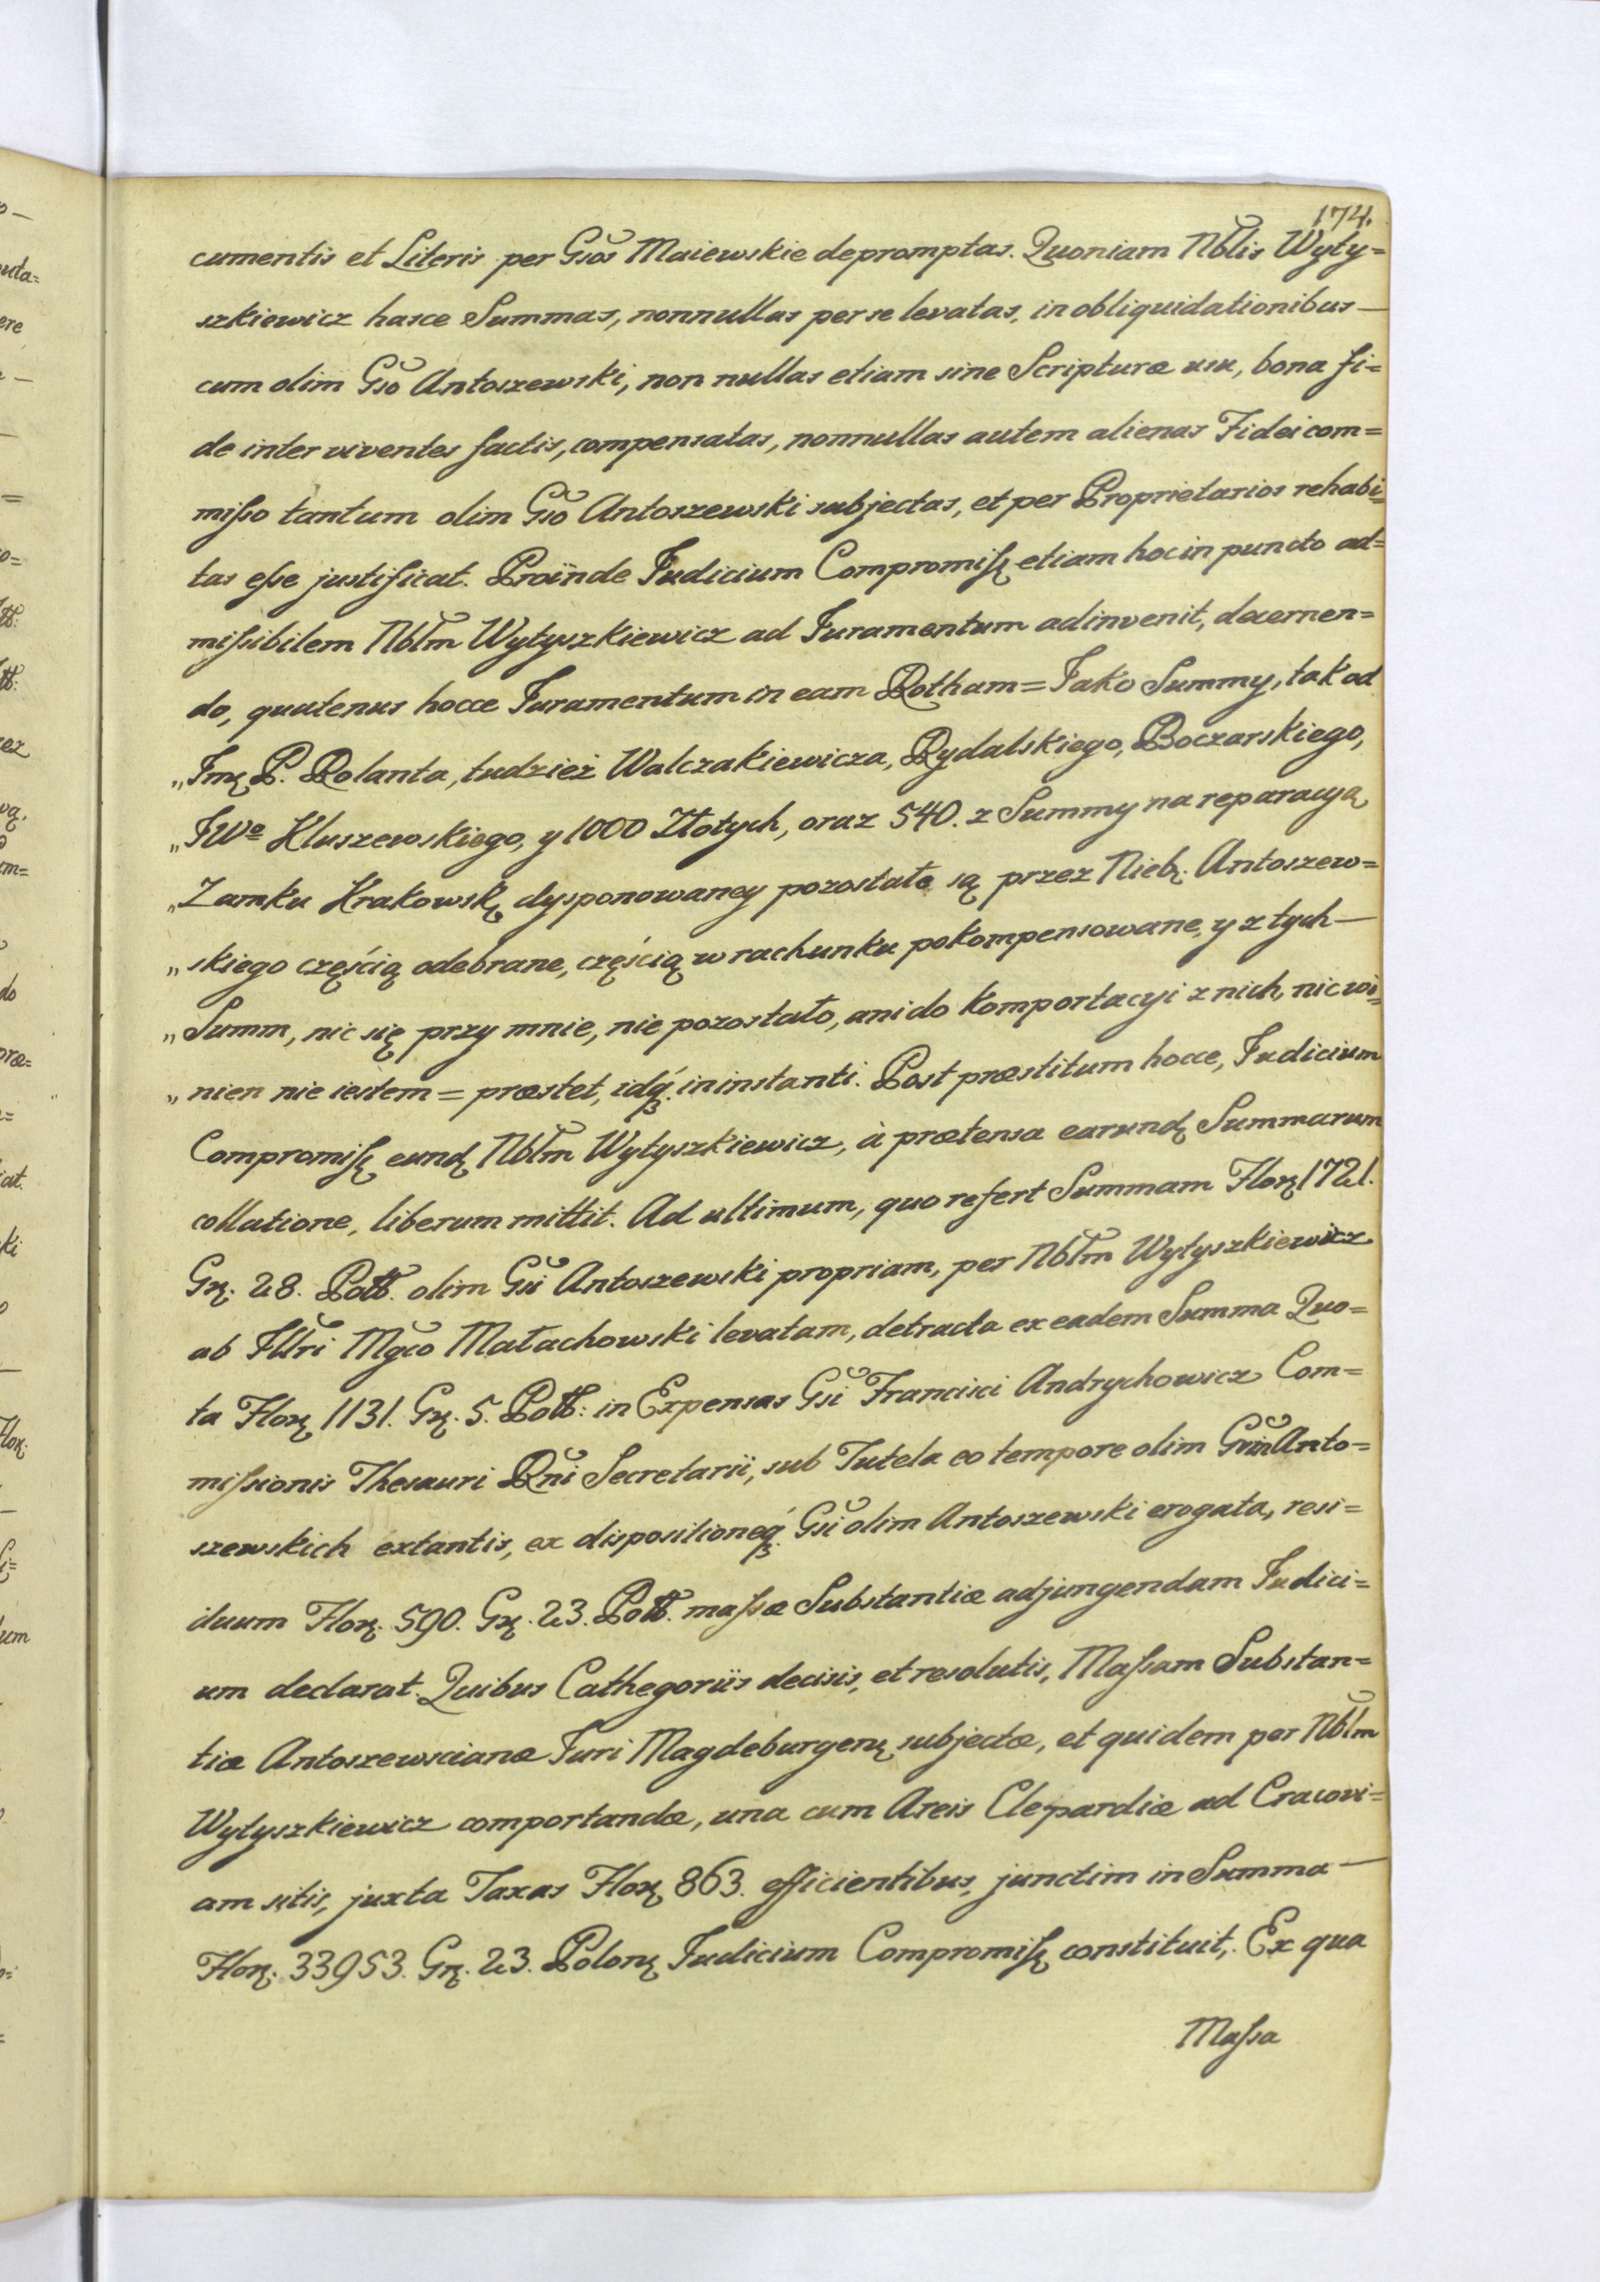 174.
cumentis et Literis per Gsos Maiewskie depromptas. Quoniam Nblis Wyty=
szkiewicz hasce Summas, nonnullas per se levatas, in obliquidationibus —
cum olim Gso Antoszewski, non nullas etiam sine Scripturæ usu, bona fi=
de inter viventes factis, compensatas, nonnullas autem alienas Fidei com=
miſso tantum olim Gso Antoszewski subjectas, et per Proprietarios rehabi=
tas eſse justificat. Proinde Judicium Compromiſs etiam hoc in puncto ad=
miſsibilem Nblm Wytyszkiewicz ad Juramentum adinvenit, decernen=
do, quatenus hocce Juramentum in eam Rotham = Jako Summy, tak od
„Jmę P. Rolanta, tudzież Walczakiewicza, Rydalskiego, Boczarskiego,
„JWo Kluszewskiego, y 1000 Złotych, oraz 540. z Summy na reparacyą
„Zamku Krakowsk. dysponowaney pozostałe są przez Nieb. Antoszew=
„skiego częścią odebrane, częścią w rachunku pokompensowane, y z tych —
„Summ, nic się przy mnie, nie pozostało, ani do komportacyi z nich, nic wi=
„nien nie iestem = præstet, idq. in instanti. Post præstitum hocce, Judicium
Compromiſs eund. Nblm Wytyszkiewicz, à prætensa earund. Summarum
collatione, liberum mittit. Ad ultimum, quo refert Summam Flor. 1721.
Gr. 28. Poll. olim Gsi Antoszewski propriam, per Nblm Wytyszkiewicz
ab Jllri Mgco Małachowski levatam, detracta ex eadem Summa Quo=
ta Flor. 1131. Gr. 5. Poll: in Expensas Gsi Francisci Andrychowicz Com=
miſsionis Thesauri Rni Secretarii, sub Tutela eo tempore olim Grm Anto=
szewskich extantis, ex dispositioneq. Gsi olim Antoszewski erogata, resi=
duum Flor. 590. Gr. 23. Poll. maſsæ Substantiæ adjungendam Judici=
um declarat. Quibus Cathegoriis decisis, et resolutis, Maſsam Substan=
tiæ Antoszewscianæ Juri Magdeburgen. subjectæ, et quidem per Nblm
Wytyszkiewicz comportandæ, una cum Areis Clepardiæ ad Cracovi=
am sitis, juxta Taxas Flor. 863. efficientibus, junctim in Summa —
Flor. 33953. Gr. 23. Polon. Judicium Compromiſs constituit,. Ex qua
Maſsa